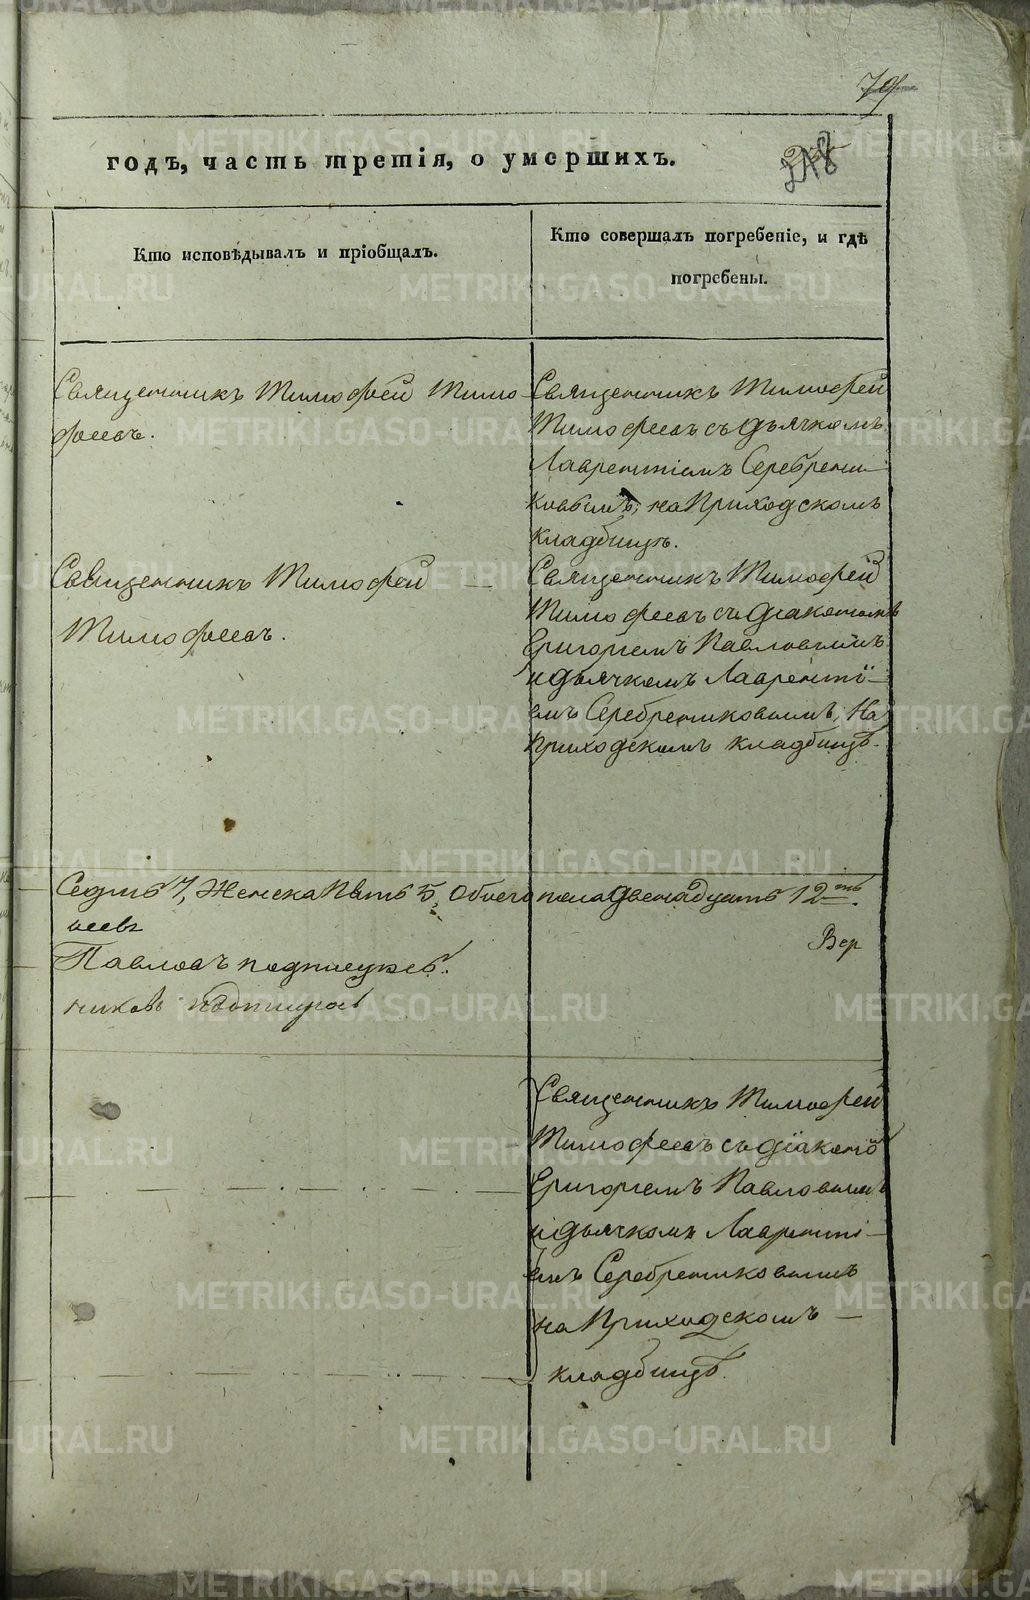 79
годъ, часть третія, о умершихъ.
248
Кто исповѣдывалъ и пріобщалъ.
Кто совершалъ погребеніе, и гдѣ
погребены.
Священникъ Тимофей Тимо
феевъ.
Священникъ Тимофей
Тимофеевъ съ дьячкомъ
Лаврентіемъ Серебрени-
ковымъ, на Приходскомъ
кладбищѣ.
Священникъ Тимофей
Тимофеевъ.
Священникъ Тимофей
Тимофеевъ съ діакономъ
Григоріемъ Павловымъ
и дьячкомъ Лаврентi-
емъ Серебрениковымъ, На
приходскомъ кладбищѣ.
Седмь 7, Женска Пять 5, Обоего пола двенадцать 12ть.
еевъ
Вер
Павловъ подписуюсь.
никовъ
Священникъ Тимофей
Тимофеевъ съ діаконо
Григоріемъ Павловымъ
и дьячкомъ Лаврентi-
емъ Серебрениковымъ
на Приходскомъ
кладбищѣ.
METRIKI.GASO-URAL.RU